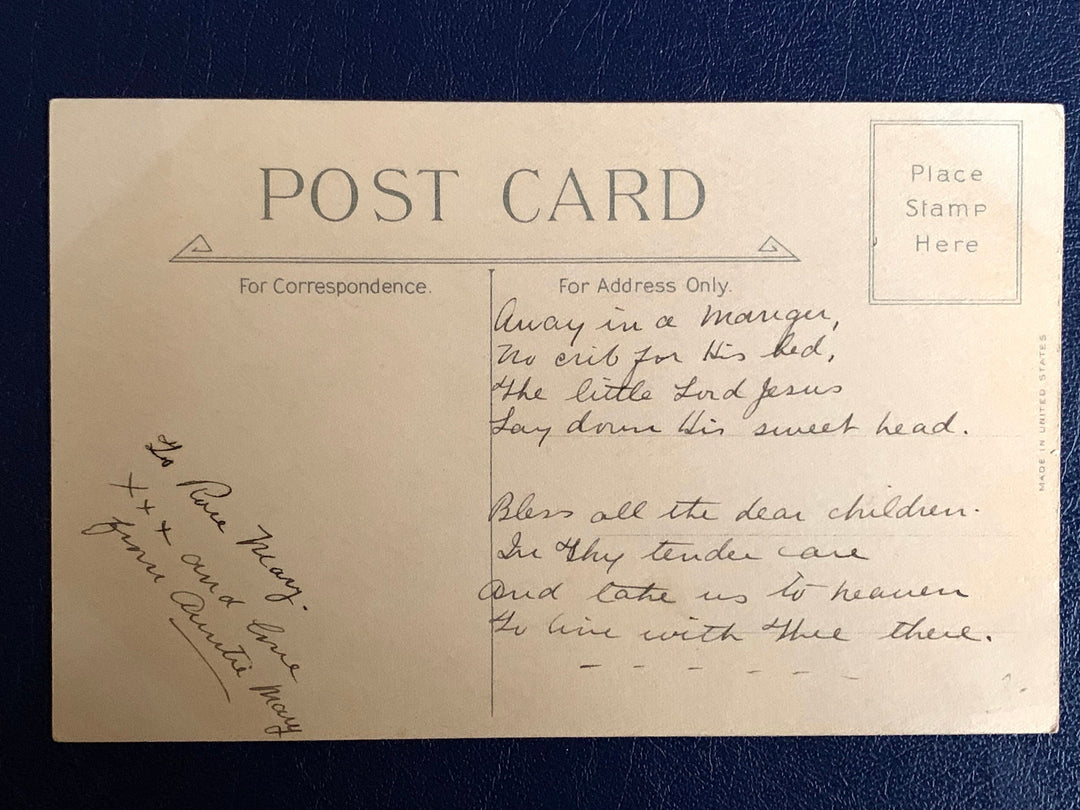 POST CARD
Place
Stamp
Here
For Correspondence.
For Address Only.
Away in a manger,
No crib for His bed,
The little Lord Jesus
Lay down His sweet head.
Bless all the dear children.
In Thy tender care
And take us to heaven
To live with Thee there.
To Rose Mary.
+++ and love
from Auntie Mary
MADE IN UNITED STATES